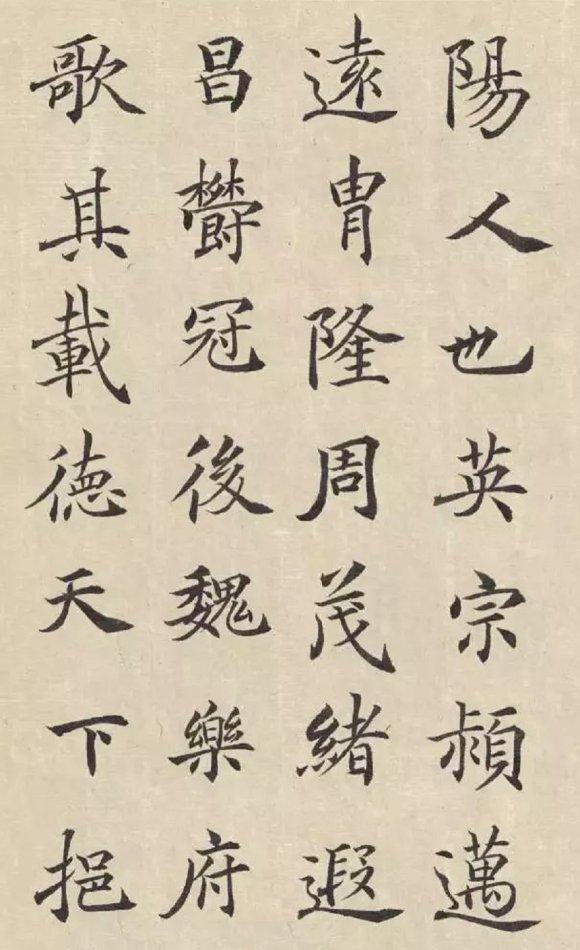 陽人也英宗頳邁
遠胄隆周茂緒遐
昌欝冠後魏樂府
歌其載徳天下挹